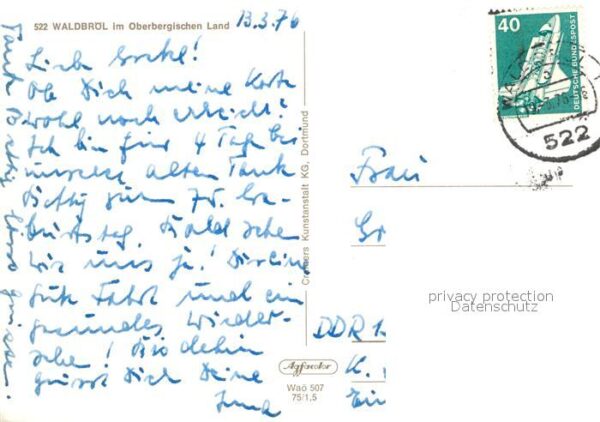 522 WALDBRÖL im Oberbergischen Land
13.3.76
Liebe
Ob Dich meine Karte
wohl noch erreicht?
Ich bin für 4 Tage bei
unserer alten Tante
Betty zum 75. Ge-
burtstag. Bald sehen
wir uns ja!
gute Fahrt und ein
gesundes Wieder-
sehen! Bis dahin
grüsst Dich Deine
Tante Betty lässt grüssen.
Cramers Kunstanstalt KG, Dortmund
Agfacolor
Waö 507
75/1,5
40
DEUTSCHE BUNDESPOST
522
Frau
DDR
privacy protection
Datenschutz